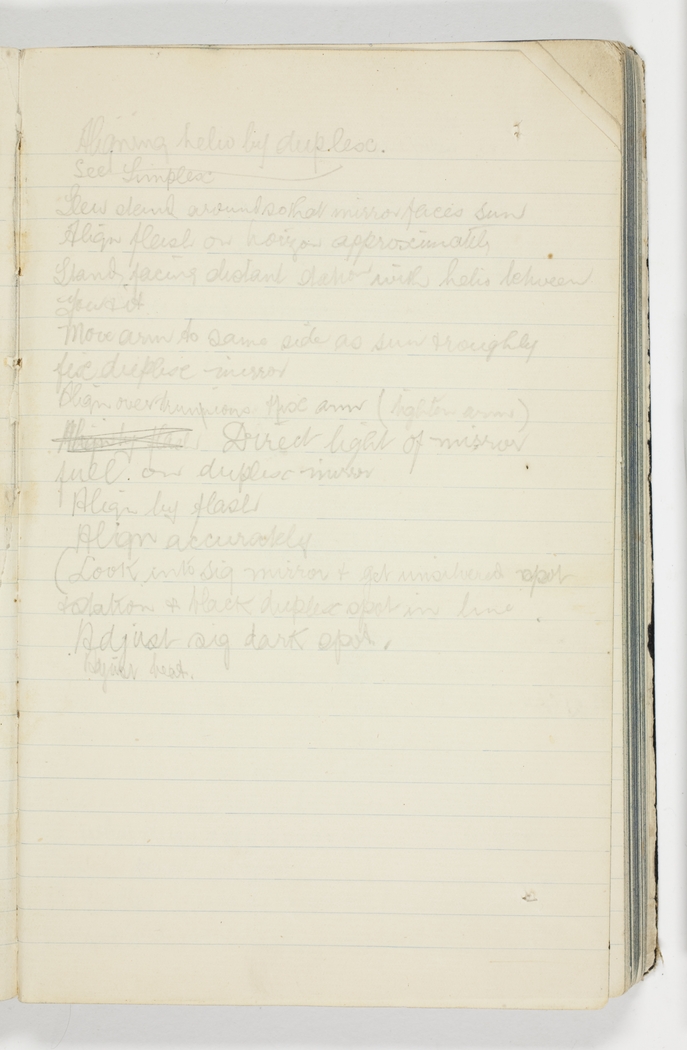 Aligning helio by duplex.
See Simplex
stand around so that mirror faces sun
Align flash on horizon approximately
Stand facing distant station with helio between
you & it
Move arm to same side as sun & roughly
fix duplex mirror
Align over trunnions & fix arm (tighten arm)
Align by flash Direct light of mirror
full on duplex mirror
Align by flash
Align accurately
(Look into sig mirror & get unsilvered spot
station & black duplex spot in line
Adjust sig dark spot.
Adjust beat.